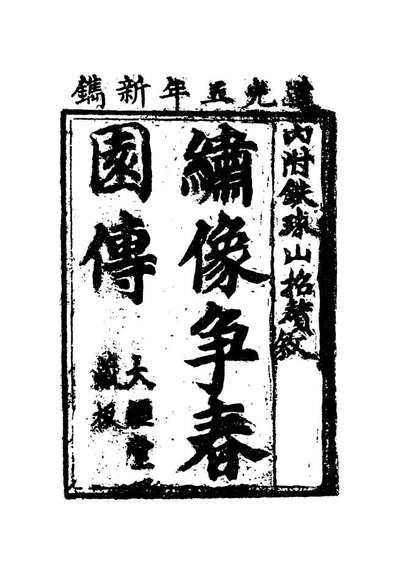 道光五年新鐫
内附鉄球山招贅
繡像争春
園傳
大
藏板